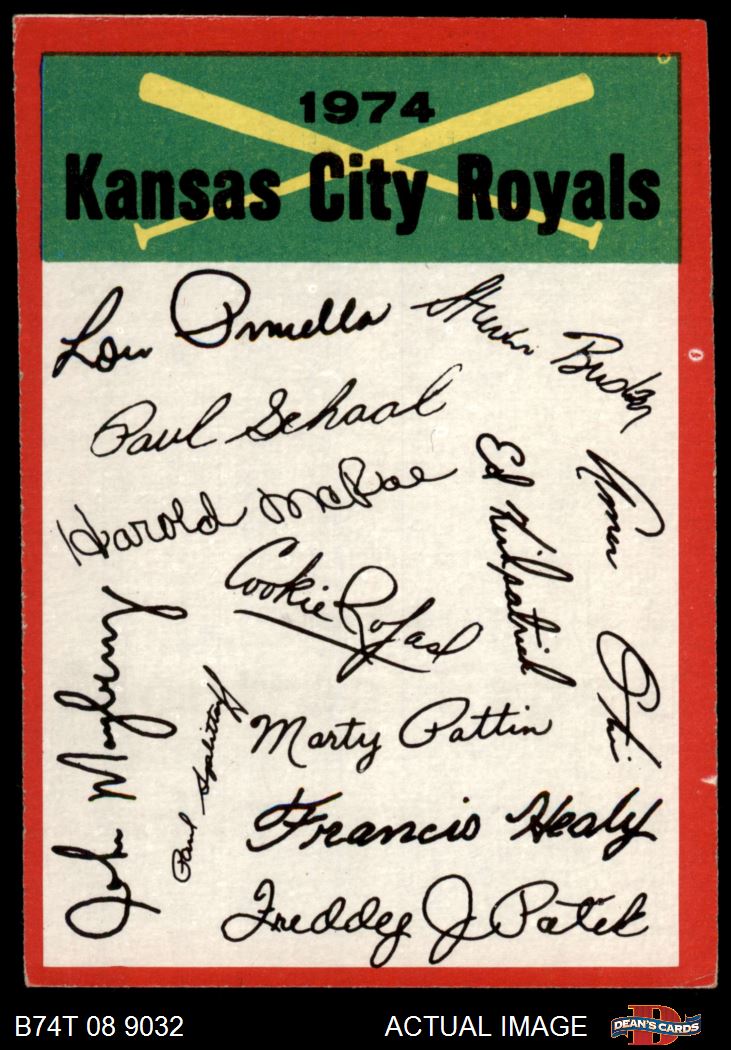 1974
Kansas City Royals
Lou Piniella
Steven Busby
Paul Schaal
Harold McRae
Ed Kirkpatrick
Amos Otis
Cookie Rojas
John Mayberry
Paul Splittorff
Marty Pattin
Francis Healy
Freddy J Patek
B74T 08 9032
ACTUAL IMAGE
DEAN'S CARDS